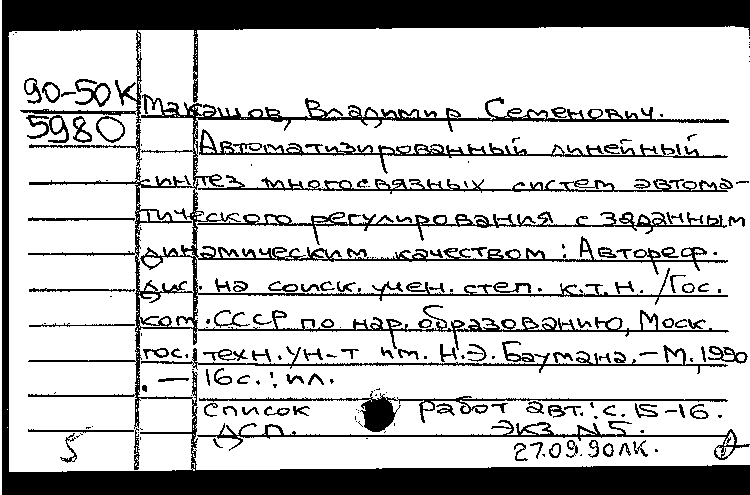 90-50К
5980
Макашов, Владимир Семенович.
Автоматизированный линейный
синтез многосвязных систем автома-
тического регулирования с заданным
динамическим качеством : Автореф.
дис. на соиск. учен. степ. к.т.н. /Гос.
ком. СССР по нар. образованию, Моск.
гос. техн. ун-т им. Н.Э. Баумана. - М., 1990
. — 16с. : ил.
Список работ авт.: с. 15-16.
ДСП. ЭКЗ N5.
5 27.09.90ЛК.